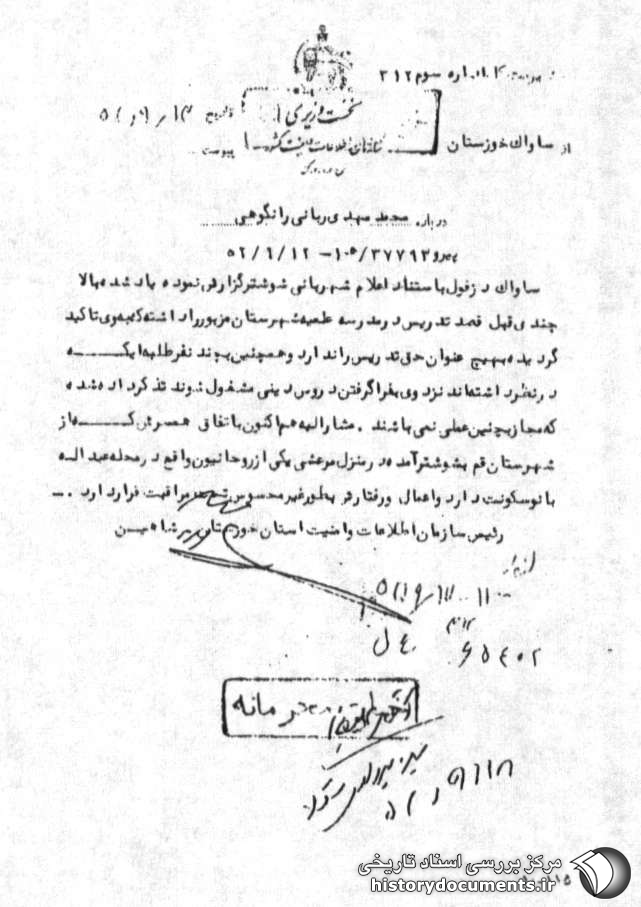 مدیریت کل اداره سوم ۳۱۲
نخست وزیری
سازمان اطلاعات و امنیت کشور
از ساواک خوزستان
تاریخ
پیوست
درباره محمد مهدی ربانی رانکوهی
پیرو ۱۰ه/۳۷۷۹۳ – ۵۲/۹/۱۲
ساواک دزفول باستناد اعلام شهربانی شوشتر گزارش نموده یاد شده بالا
چندی قبل قصد تدریس در مدرسه علمیه شهرستان مزبور را داشته که بوی تاکید
گردیده بهیچ عنوان حق تدریس را ندارد و همچنین بچند نفر طلبه ایکه
در نظر داشته‌اند نزد وی بفرا گرفتن دروس دینی مشغول شوند تذکر داده شده
که مجاز بچنین عملی نمی باشند . مشارالیه هم اکنون باتفاق همسرش که از
شهرستان قم بشوشتر آمده در منزل مرعشی یکی از روحانیون واقع در محله عبداله
بانو سکونت دارد و اعمال و رفتارش بطور غیر محسوس تحت مراقبت قرار دارد .
رئیس سازمان اطلاعات و امنیت استان خوزستان
۶۵۴۰۲
محرمانه
مرکز بررسی اسناد تاریخی
historydocuments.ir